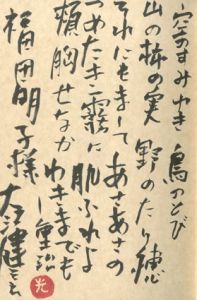 空のすみゆき 鳥のとび
山の柿の実 野のたり穂
それにもまして あさあさの
つめたき霧に 肌ふれよ
頬胸せなか わきまでも
重治
福田明子様
大江健三郎
光